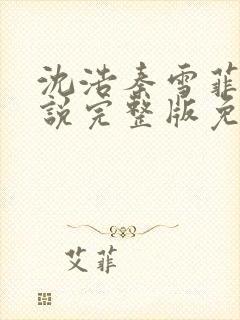 沈浩秦雪菲
説完整版免
艾菲